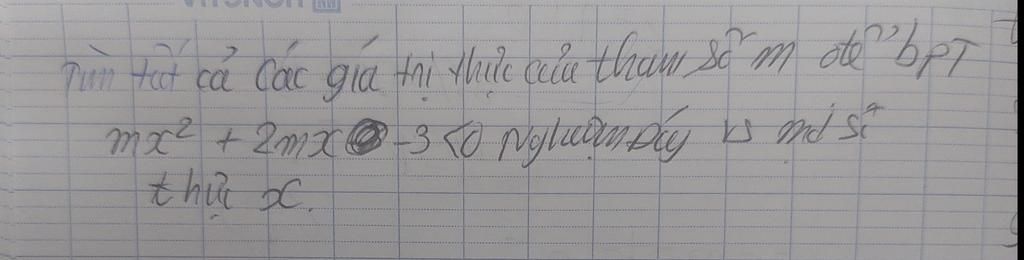 Tìm tất cả các giá trị thực của tham số m để bPT
mx² + 2mx -3 <0 Nghiệm đúng vs mọi số
thực x.